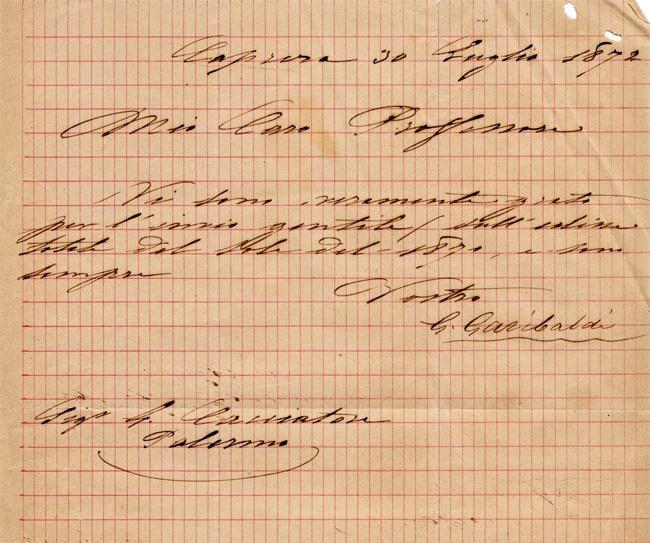 Caprera 30 Luglio 1872
Mio Caro Professore
Vi sono veramente grato
per l'invio gentile dell'eclisse
totale del Sole del 1870, e sono
sempre
Vostro
G. Garibaldi
Sigr G. Cacciatore
Palermo